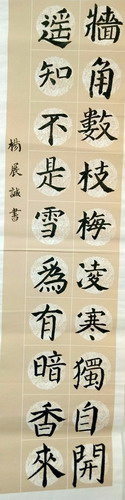 牆角數枝梅凌寒獨自開
遥知不是雪為有暗香來
楊展誠書